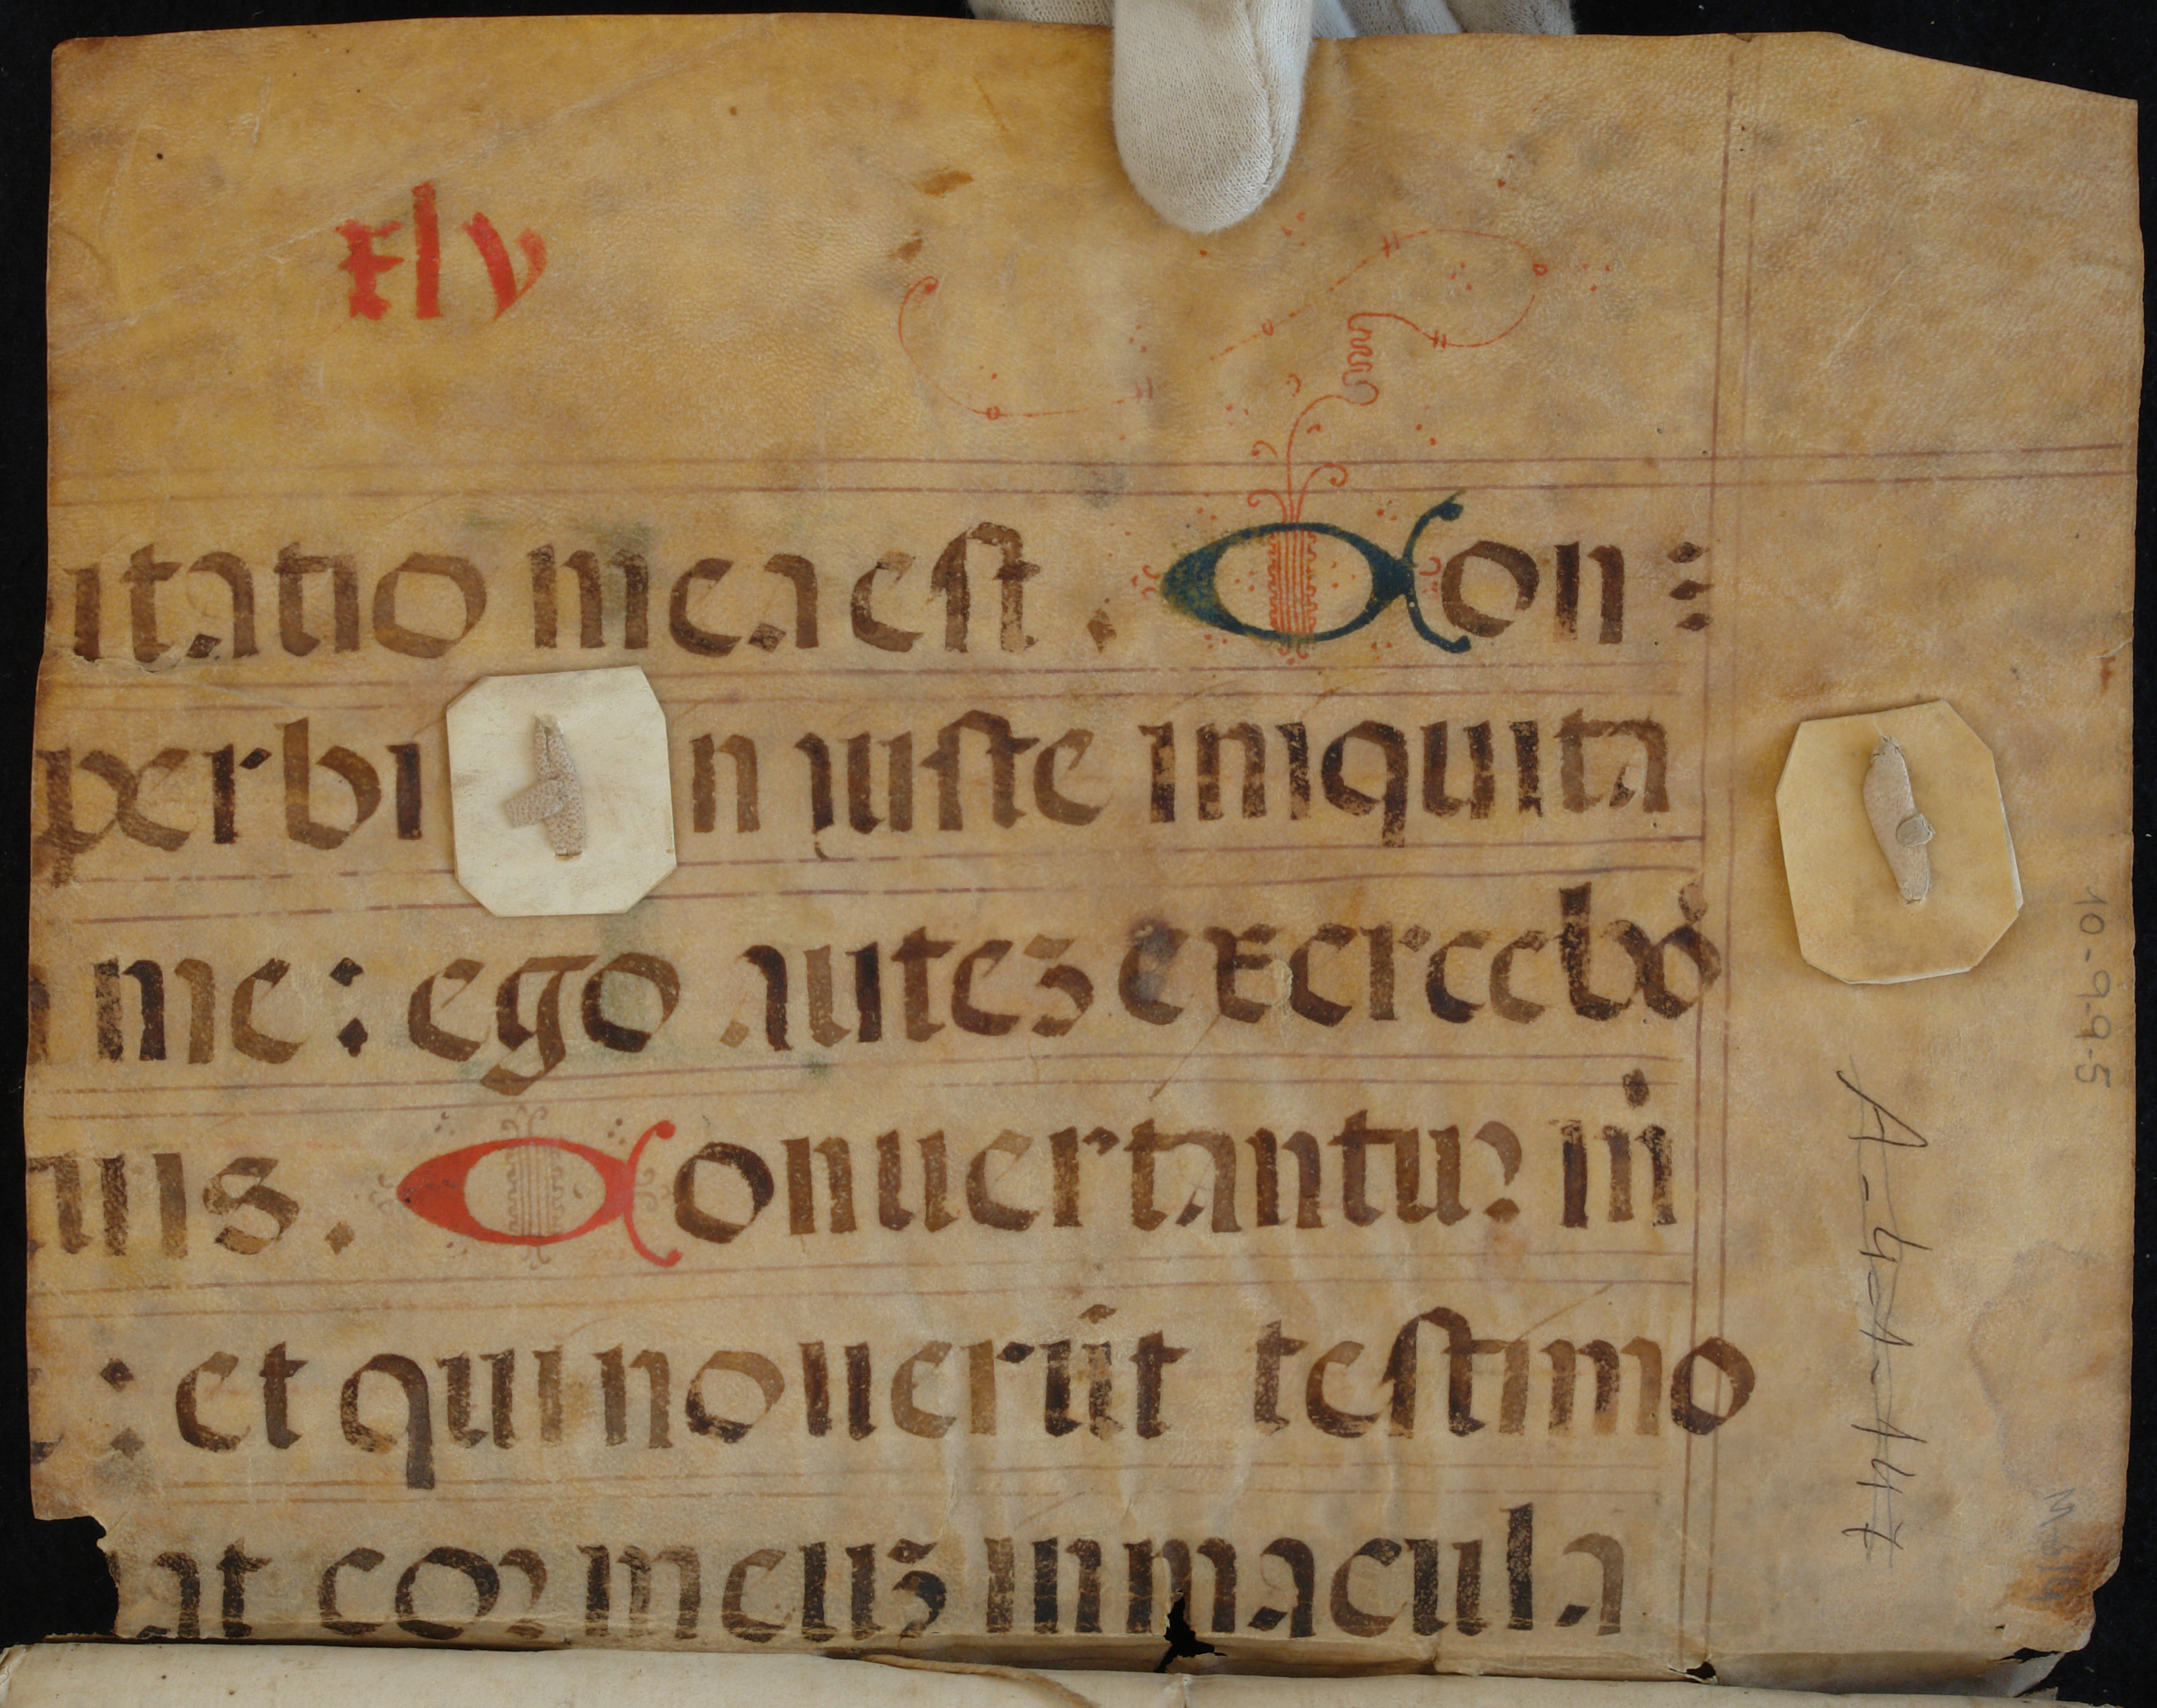 xlv
itatio mea est . Con :
perbi n iuste iniquita
me : ego auteʒ exerceboͬ
uis . Conuertantuꝛ in̄
: et qui nouerūt testimo
at coꝛ meuʒ inmacula
10-9-9-5